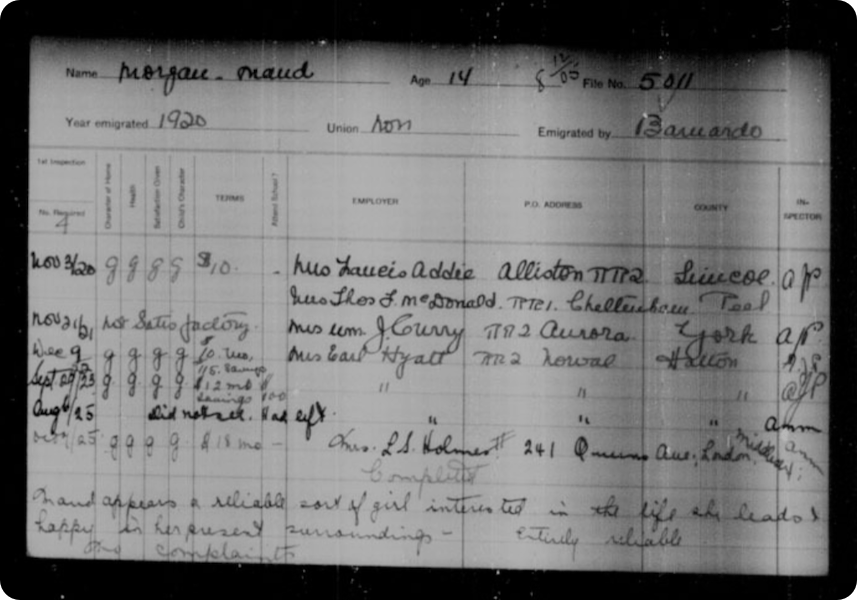 Name Morgan - Maud Age 14 8 12/05 File No. 5011
Year emigrated 1920 Union Non Emigrated by Barnardo
1st Inspection
No. Required 4 Character of Home Health Satisfaction Given Child's Character TERMS Attend School? EMPLOYER P.O. ADDRESS COUNTY IN-SPECTOR
Nov 3/20 g g g g $10. - Mrs Francis Addie Alliston RR2. Simcoe. a JP
Mrs Thos F. McDonald. RR1. Cheltenham Peel
Nov 21/21 not Satisfactory. Mrs Wm J. Curry RR2 Aurora York a P.
Dec 9/22 g g g g 10. mo. Mrs Earl Hyatt RR2 Norval Halton
115. Savings
Sept 29/23 g g g g $12 mo " " " a JP
Savings 100
Aug 6/25 Did not see. Had left. " " " amm
25 g g g g $18 mo - Mrs. L.S. Holmes 241 Queens Ave; London. Middlesex; amm
Completed
Maud appears a reliable sort of girl interested in the life she leads &
happy in her present surroundings - Entirely reliable
no complaints